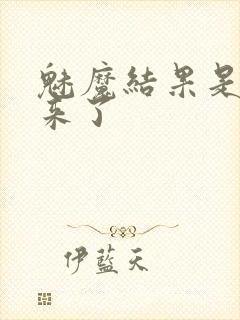 魅魔結果是
来了
伊藍天